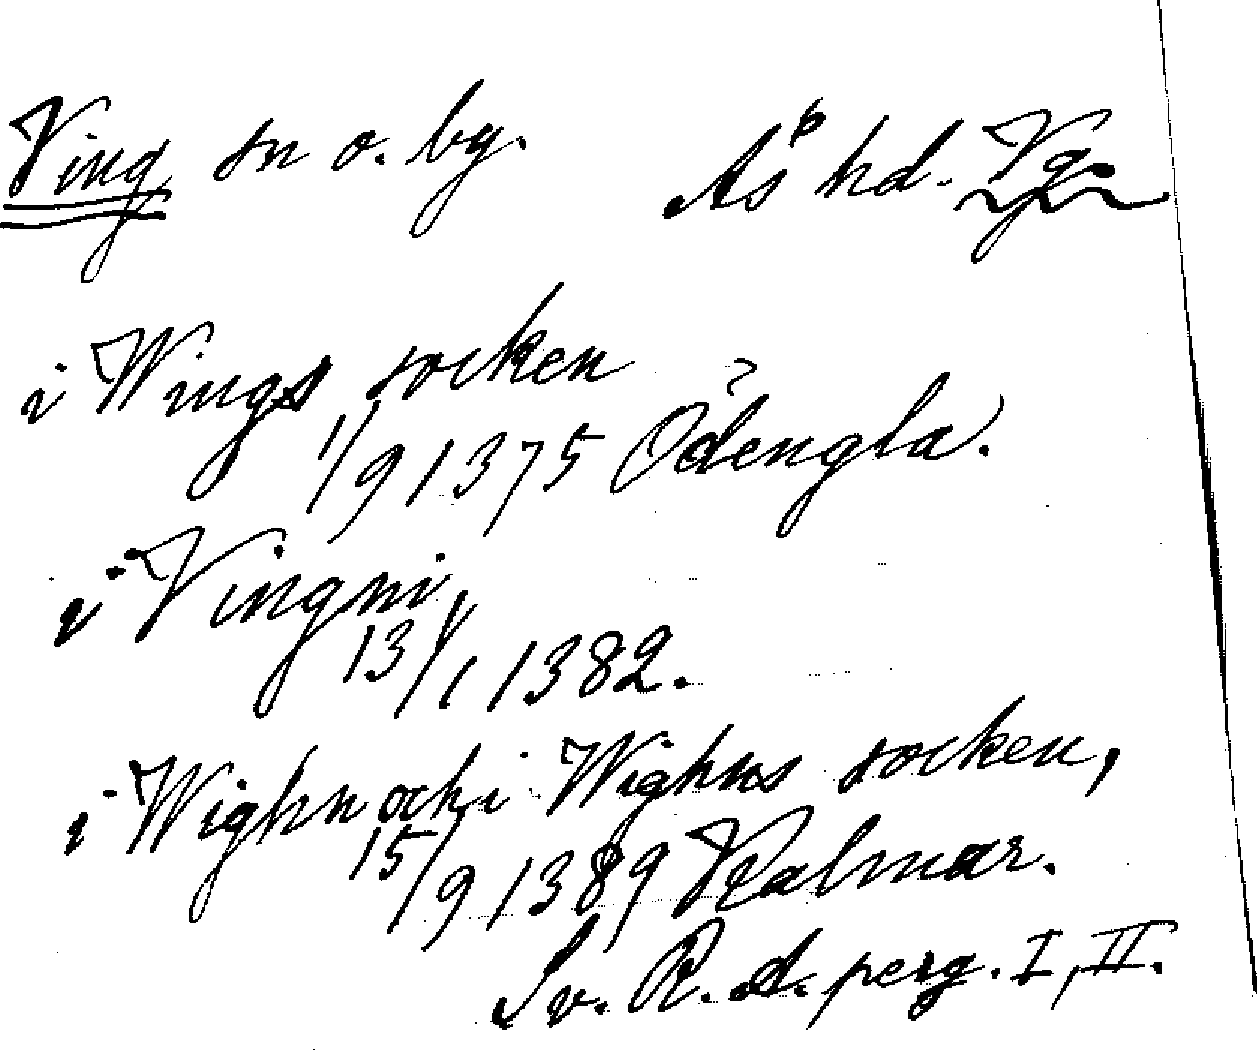 Ving sn o. by. Ås hd. Vg.
i Wings socken
1/9 1375 Ödengla.
i Vingni,
13/1 1382.
i Wighn och i Wighns socken,
15/9 1389 Kalmar.
Sv. R. A. perg. I, II.